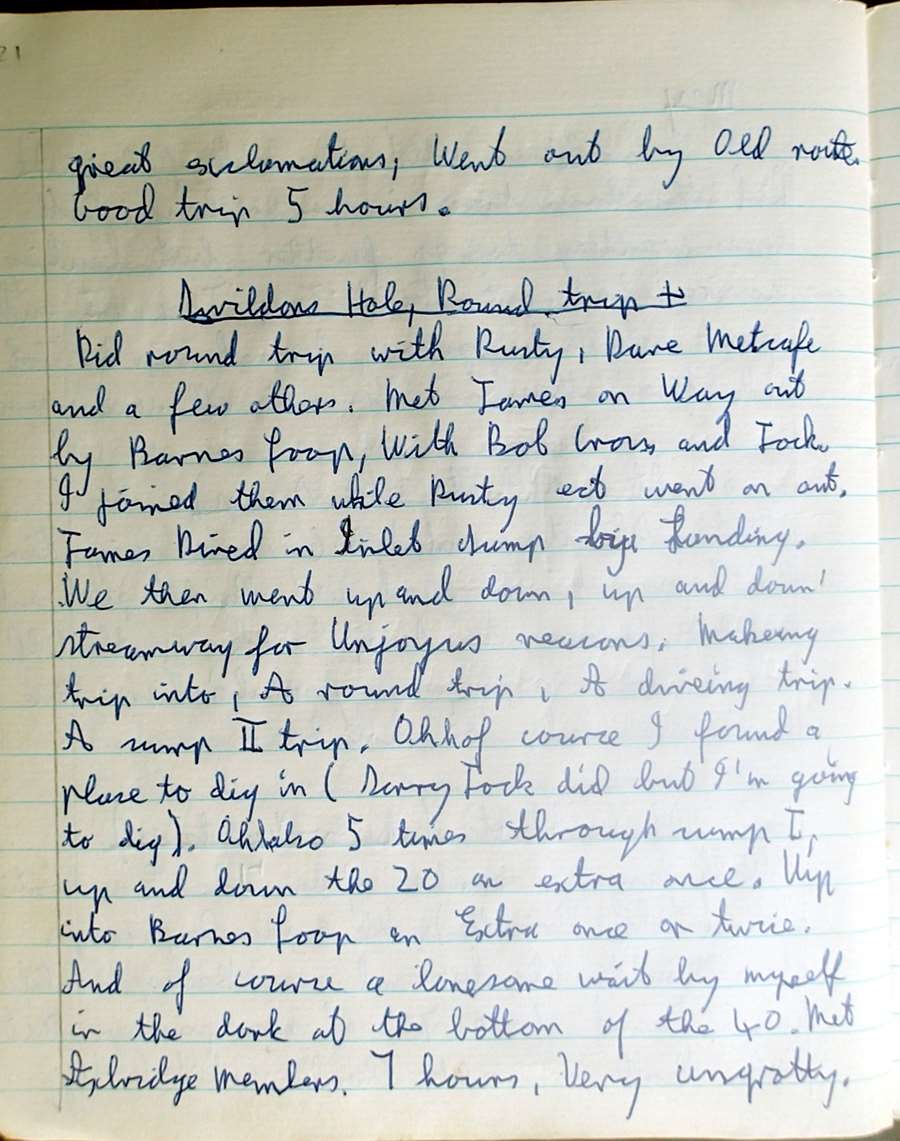 21
great exclamations, Went out by Old route.
Good trip 5 hours.
Swildons Hole, Round trip +
Did round trip with Rusty, Dave Metcafe
and a few others. Met James on Way out
by Barnes Loop, With Bob Cross and Jock.
I joined them while Rusty ect went on out.
James Dived in Inlet sump Landing.
We then went up and down, up and down
streamway for Unjoyus reasons. Makeing
trip into, A round trip, A diveing trip.
A sump II trip. Ohh of cource I found a
place to dig in (Sorry Jock did but I'm going
to dig). Ahh also 5 times through sump I,
up and down the 20 an extra once. Up
into Barnes Loop an Extra once or twice.
And of course a lonesome wait by myself
in the dark at the bottom of the 40. Met
Axbridge Members. 7 hours, Very ungrotty.